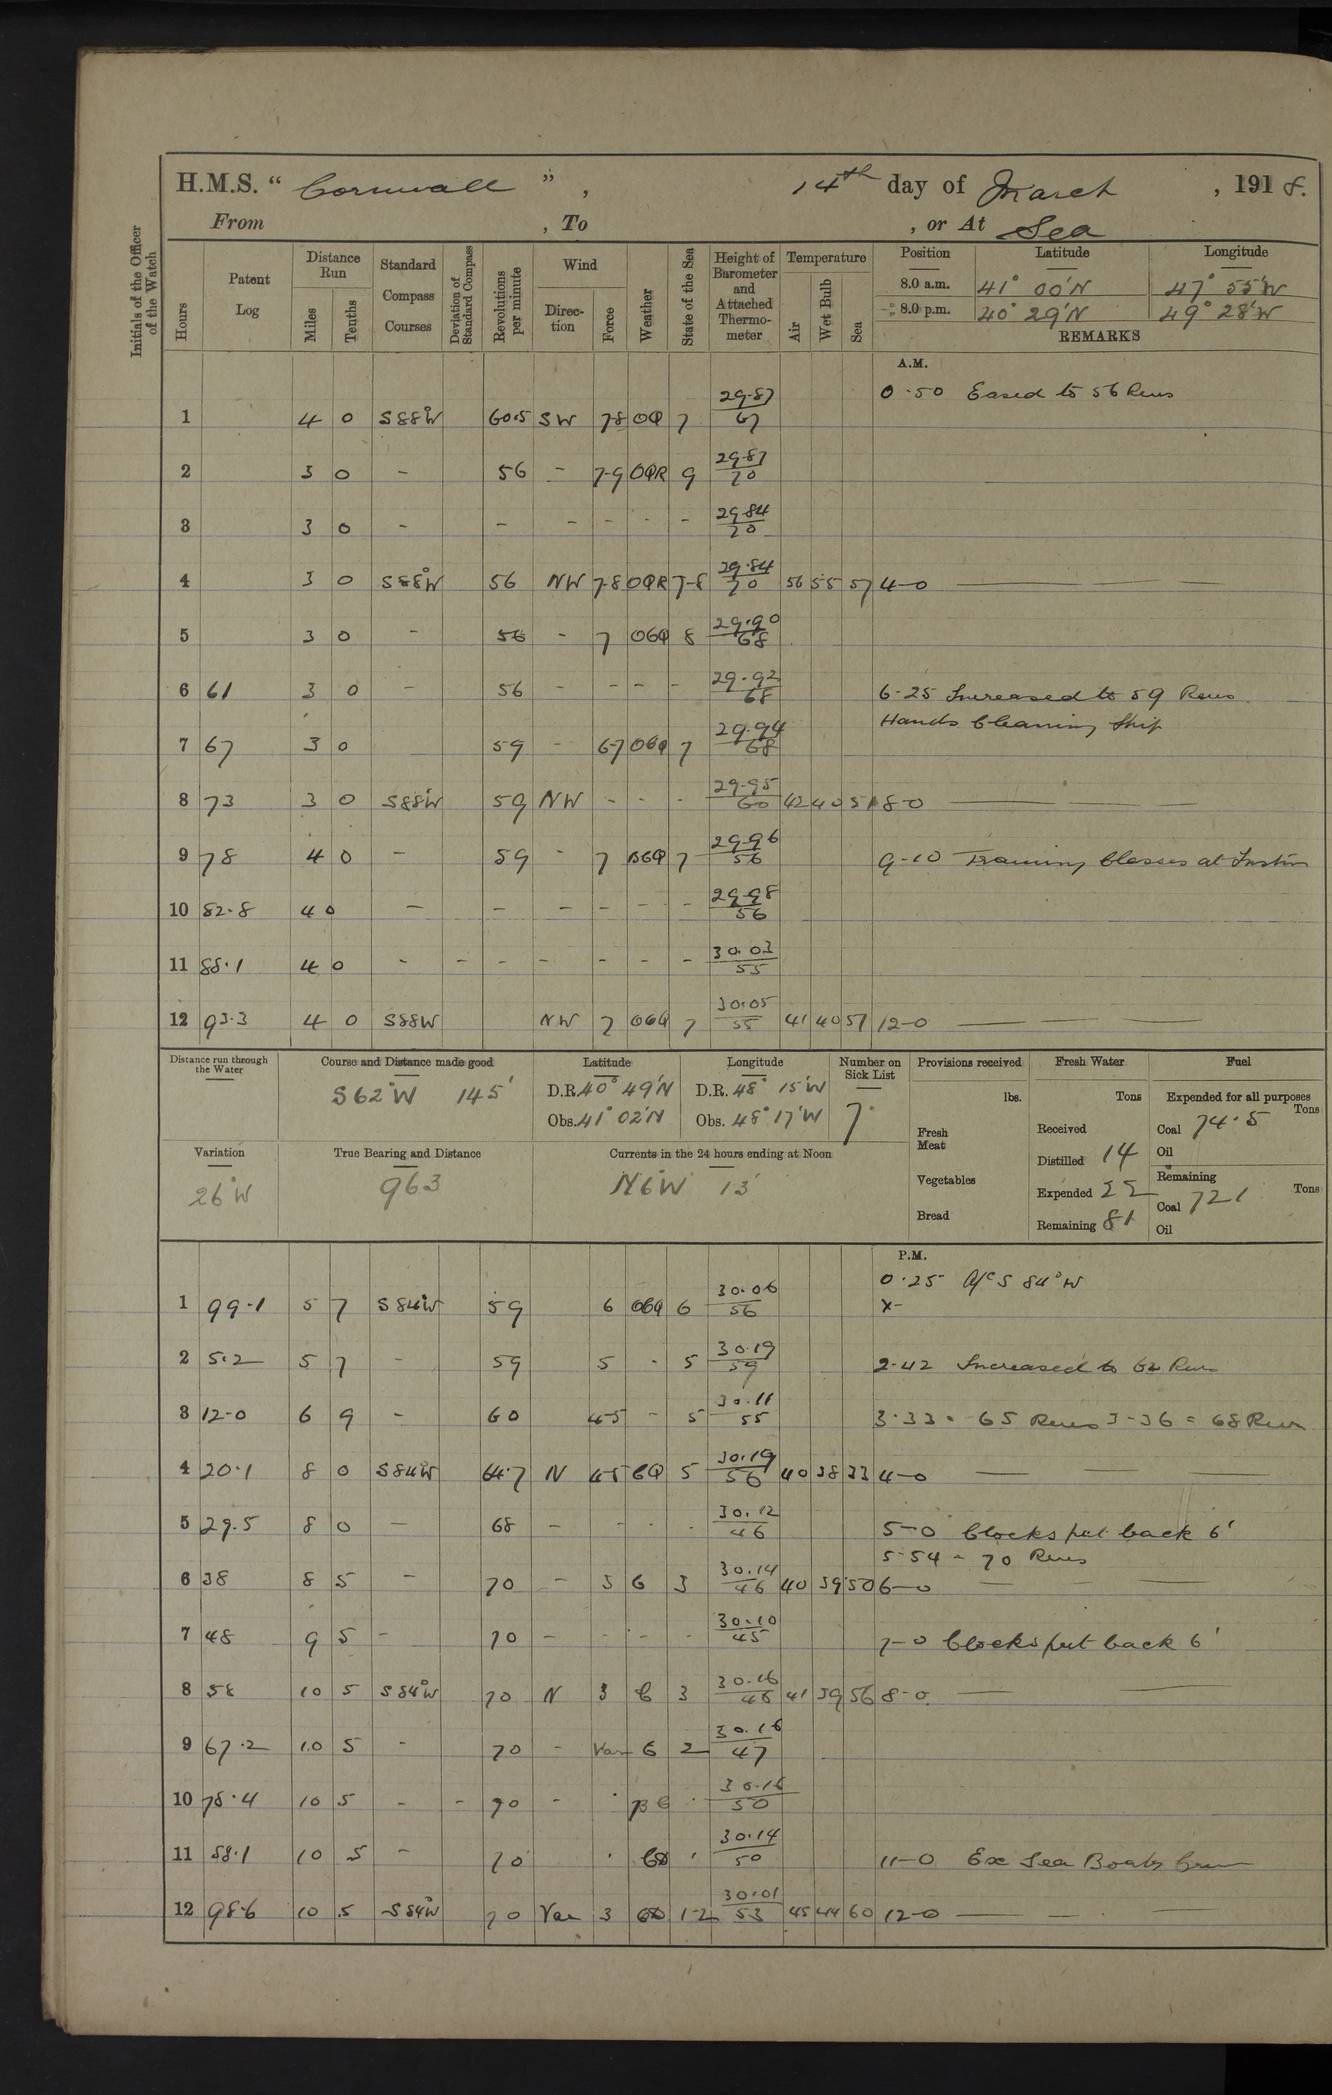 H.M.S. “ Cornwall ” , 14th day of March , 1918.
From , To , or At Sea
Initials of the Officer of the Watch
Hours Patent Log Distance Run Miles Tenths Standard Compass Courses Deviation of Standard Compass Revolutions per minute Wind Direction Force Weather State of the Sea Height of Barometer and Attached Thermometer Temperature Air Wet Bulb Sea Position Latitude Longitude
8.0 a.m. 41° 00'N 47° 55'W
8.0 p.m. 40° 29'N 49° 28'W
REMARKS
A.M.
0.50 Eased to 56 Revs
1 4 0 S88°W 60.5 SW 7-8 OQ 7 29.87 67
2 3 0 - 56 - 7-9 OQR 9 29.87 70
3 3 0 - - - - - - 29.84 70
4 3 0 S88°W 56 NW 7-8 OQR 7-8 29.84 70 56 55 57 4-0
5 3 0 - 56 - 7 OGQ 8 29.90 68
6 61 3 0 - 56 - - - - 29.92 68 6-25 Increased to 59 Revs
Hands Cleaning Ship
7 67 3 0 59 - 6-7 OGQ 7 29.94 68
8 73 3 0 S88°W 59 NW - - - 29.95 60 42 40 51 8-0
9 78 4 0 - 59 - 7 BGQ 7 29.96 56 9-10 Training Classes at Instn
10 82.8 4 0 - - - - - - 29.98 56
11 88.1 4 0 - - - - - - - 30.03 55
12 93.3 4 0 S88W NW 7 OGQ 7 30.05 55 41 40 51 12-0
Distance run through the Water Course and Distance made good Latitude Longitude Number on Sick List Provisions received Fresh Water Fuel
S62°W 145' D.R. 40° 49'N D.R. 48° 15'W lbs. Tons Expended for all purposes Tons
Obs. 41° 02'N Obs. 48° 17'W 7 Fresh Meat Received Coal 74.5
Oil
Variation True Bearing and Distance Currents in the 24 hours ending at Noon Distilled 14
26°W 963 N6°W 13' Vegetables Expended 22 Remaining Tons
Coal 721
Bread Remaining 81 Oil
P.M.
0.25 A/C S 84°W
1 99.1 5 7 S84°W 59 6 OGQ 6 30.06 56 x-
2 5.2 5 7 - 59 5 - 5 30.19 59 2-42 Increased to 62 Revs
3 12-0 6 9 - 60 4-5 - 5 30.11 55 3.33 - 65 Revs 3-36 = 68 Revs
4 20.1 8 0 S84°W 64.7 N 4-5 GQ 5 30.19 56 40 38 33 4-0
5 29.5 8 0 - 68 - - - . 30.12 46 5-0 Clocks put back 6'
5-54 - 70 Revs
6 38 8 5 - 70 - 3 G 3 30.14 46 40 39 50 6-0
7 48 9 5 - 70 - - - - 30.10 45 7-0 Clocks put back 6'
8 58 10 5 S84°W 70 N 3 C 3 30.16 46 41 39 56 8-0
9 67.2 10 5 - 70 - Var G 2 30.16 47
10 78.4 10 5 - - 70 - 30.16 50
11 88.1 10 5 - 70 30.14 50 11-0 Ex Sea Boats Crew
12 98.6 10 5 S84°W 70 Var 3 1-2 30.01 53 45 44 60 12-0